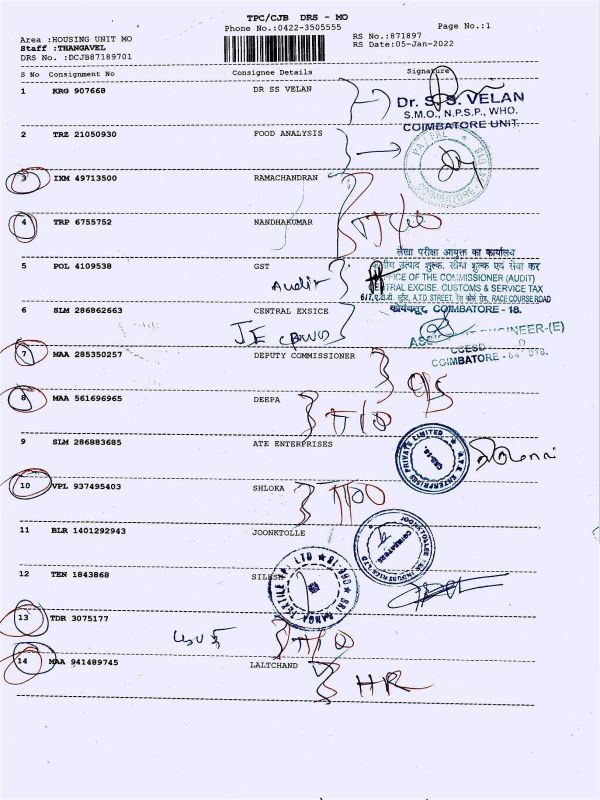 TPC/CJB DRS - MO
Phone No.:0422-3505555
Page No.:1
Area :HOUSING UNIT MO
RS No.:871897
Staff :THANGAVEL
RS Date:05-Jan-2022
DRS No. :DCJB87189701
S No Consignment No Consignee Details Signature
1 KRG 907668 DR SS VELAN
Dr. S. S. VELAN
S.M.O., N.P.S.P., WHO.
COIMBATORE UNIT
2 TRZ 21050930 FOOD ANALYSIS
COIMBATORE
3 IXM 49713500 RAMACHANDRAN
4 TRP 6755752 NANDHAKUMAR
लेखा परीक्षा आयुक्त का कार्यालय
उत्पाद शुल्क, सीमा शुल्क एवं सेवा कर
5 POL 4109538 GST
Audit
OFFICE OF THE COMMISSIONER (AUDIT)
CENTRAL EXCISE, CUSTOMS & SERVICE TAX
6/7, ए.टी.डी. स्ट्रीट, A.T.D. STREET, रेस कोर्स रोड, RACE COURSE ROAD
कोयंबत्तूर, COIMBATORE - 18.
6 SLM 286862663 CENTRAL EXSICE
JE
ENGINEER-(E)
COIMBATORE
7 MAA 285350257 DEPUTY COMMISSIONER
8 MAA 561696965 DEEPA
9 SLM 286883685 ATE ENTERPRISES
A.T.E. ENTERPRISES PRIVATE LIMITED
10 VPL 937495403 SHLOKA
11 BLR 1401292943 JOONKTOLLE
JOONKTOLLEE TEA INDUSTRIES LTD
COIMBATORE
12 TEN 1843868 SILESH
SRI RANGA TEXTILE LTD
13 TDR 3075177
14 MAA 941489745 LALTCHAND
HR